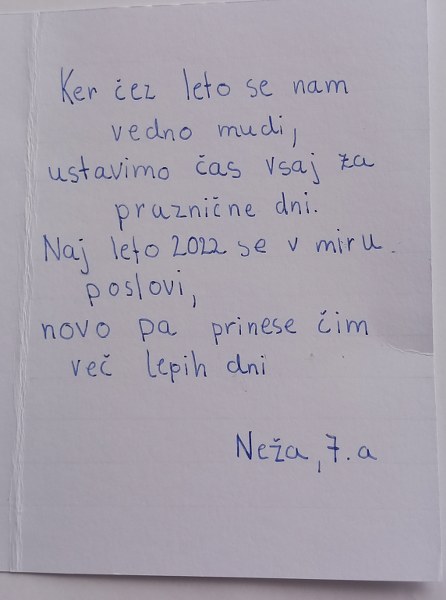 Ker čez leto se nam
vedno mudi,
ustavimo čas vsaj za
praznične dni.
Naj leto 2022 se v miru
poslovi,
novo pa prinese čim
več lepih dni
Neža, 7. a